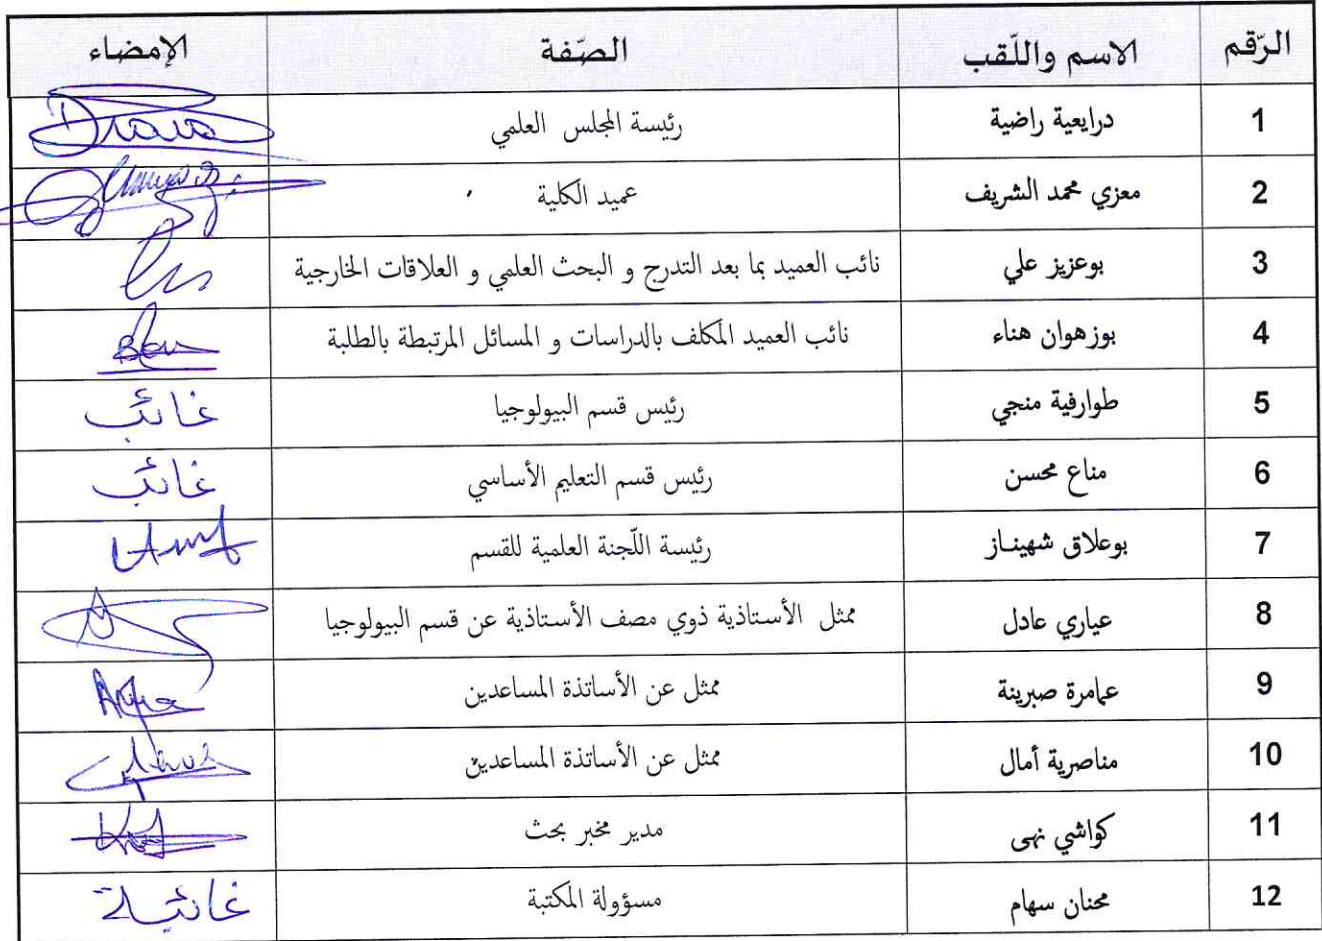 الرّقم الاسم واللّقب الصّفة الإمضاء
1 درايعية راضية رئيسة المجلس العلمي
2 معزي محمد الشريف عميد الكلية
3 بوعزيز علي نائب العميد بما بعد التدرج و البحث العلمي و العلاقات الخارجية
4 بوزهوان هناء نائب العميد المكلف بالدراسات و المسائل المرتبطة بالطلبة
5 طوارفية منجي رئيس قسم البيولوجيا غائب
6 مناع محسن رئيس قسم التعليم الأساسي غائب
7 بوعلاق شهيناز رئيسة اللّجنة العلمية للقسم
8 عياري عادل ممثل الأستاذية ذوي مصف الأستاذية عن قسم البيولوجيا
9 عمامرة صبرينة ممثل عن الأساتذة المساعدين
10 مناصرية أمال ممثل عن الأساتذة المساعدين
11 كواشي نهى مدير مخبر بحث
12 محنان سهام مسؤولة المكتبة غائبة